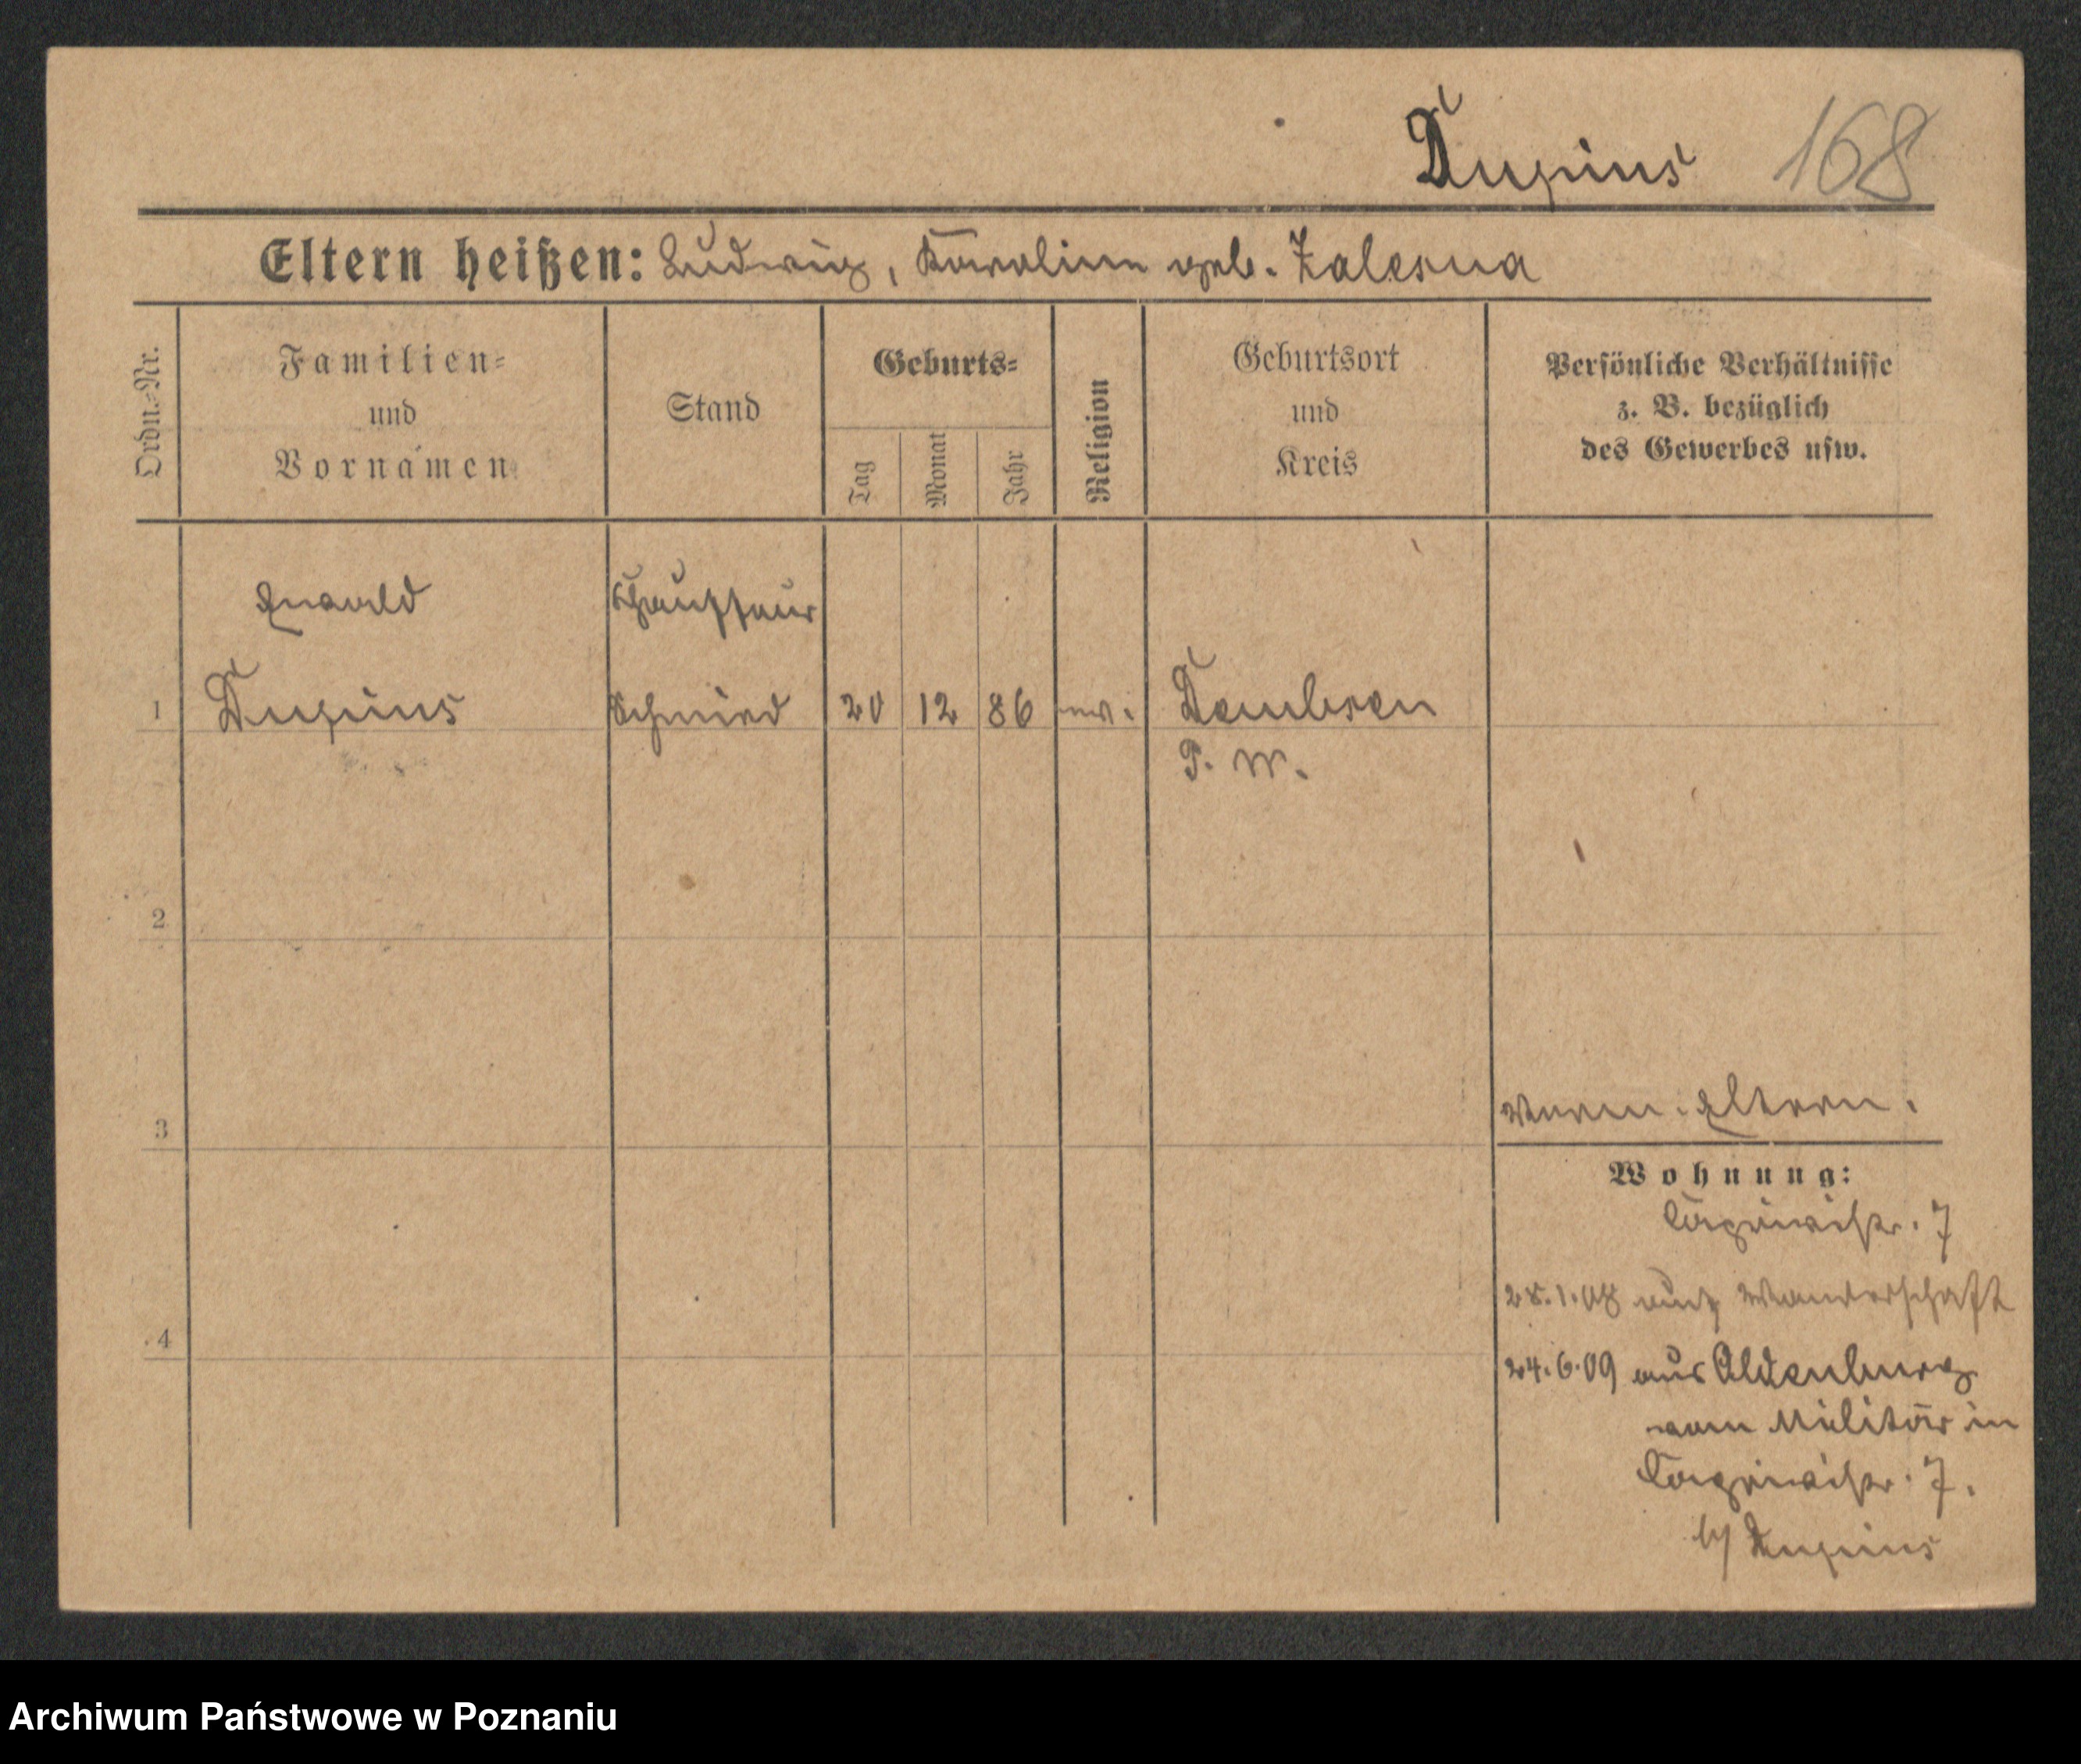 Dupius 168
Eltern heißen: Ludwig, Karoline geb. Zalesna
Ordn.-Nr.
Familien-
und
Vornamen
Stand
Geburts-
Tag
Monat
Jahr
Religion
Geburtsort
und
Kreis
Persönliche Verhältnisse
z. B. bezüglich
des Gewerbes usw.
Ewald Chauffeur
1 Dupius Schmied 20 12 86 ev. Dembsen
P. W.
2
3
Eltern.
Wohnung:
7
.1.08 auf Wanderschaft
4
24.6.09 aus Oldenburg
vom Militär in
7.
b/ Dupius
Archiwum Państwowe w Poznaniu